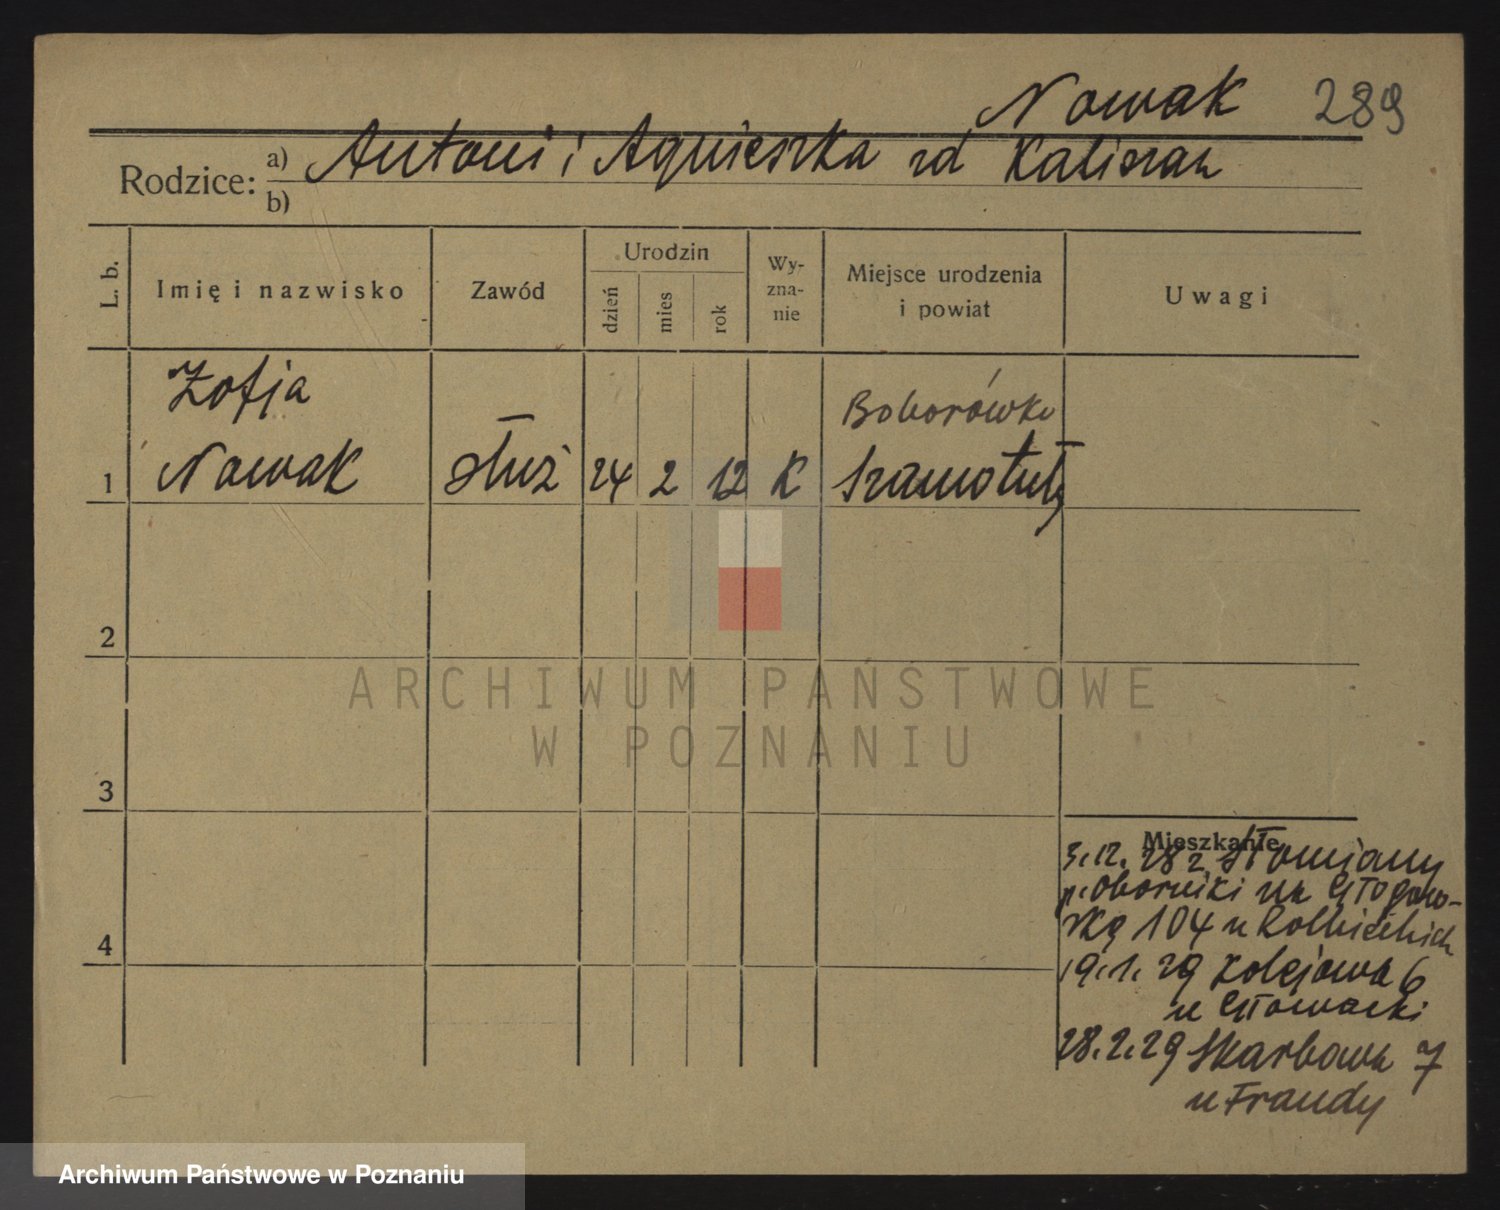 Nowak 289
Rodzice: a) Antoni i Agnieszka zd Kaliszan
b)
L. b. Imię i nazwisko Zawód Urodzin dzień mies rok Wyznanie Miejsce urodzenia i powiat Uwagi
Zofja Boborówko
1 Nowak służ 24 2 12 K Szamotuły
2
ARCHIWUM PAŃSTWOWE
W POZNANIU
3
Mieszkanie
3.12.28 z Słomiany
p. Oborniki na Głogow-
ską 104 u
4
19.1.29 Kolejowa 6
u Głowacki
28.2.29 Skarbowa 7
u Frandy
Archiwum Państwowe w Poznaniu